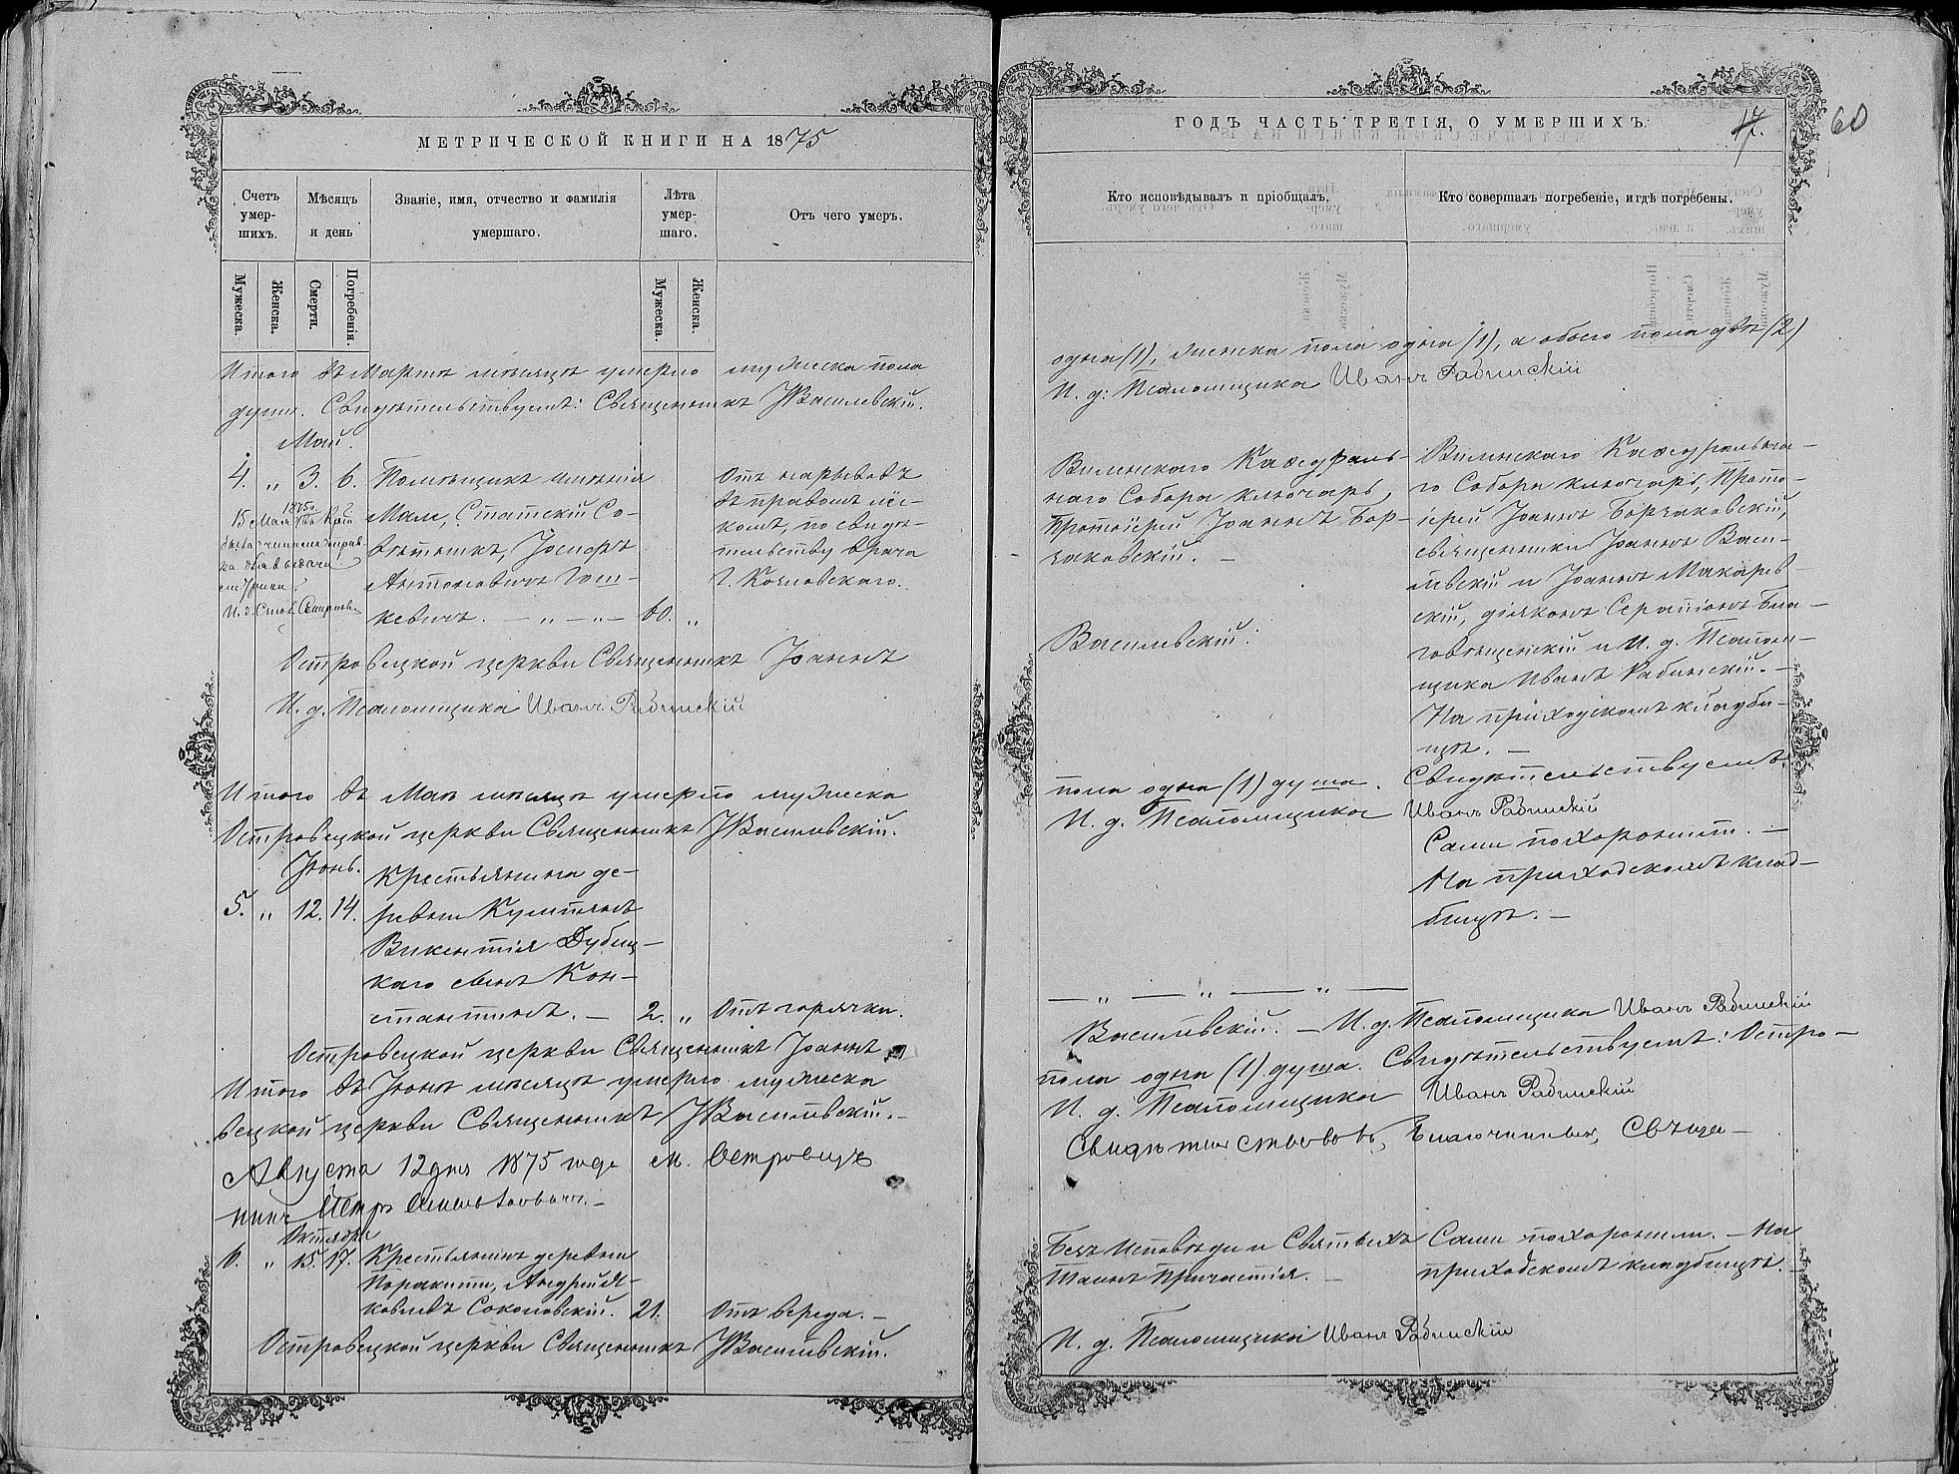 МЕТРИЧЕСКОЙ КНИГИ НА 1875
Счетъ умер-шихъ.
Мѣсяцъ и день
Званіе, имя, отчество и фамилія умершаго.
Лѣта умер-шаго.
Отъ чего умеръ.
Мужеска.
Женска.
Смерти.
Погребенія.
Мужеска.
Женска.
Итого въ Мартѣ мѣсяцѣ умерло мужеска пола
души. Свидѣтельствуемъ: Священникъ І Василевскій.
Май.
4. „ 3. 6. Помѣщикъ имѣнія
Мале, Статскій Со-
вѣтникъ, Іосифъ
Антоновичъ Гош-
кевичъ. — „ — „ — 60. „
Отъ нарывовъ
въ правомъ лег-
комъ, по свидѣ-
тельству врача
Г. Козловскаго.
15 Мая 1875
выдачи
И. д.
Островецкой церкви Священникъ Іоаннъ
И. д. Псаломщика Иванъ Рабинскій
Итого въ Маѣ мѣсяцѣ умерло мужеска
Островецкой церкви Священникъ І Василевскій.
Іюнь.
Крестьянина де-
5. „ 12. 14. ревни
Викентія Дубиц-
каго сынъ Кон-
стантинъ. — 2. „ Отъ горячки.
Островецкой церкви Священникъ Іоаннъ
Итого въ Іюнѣ мѣсяцѣ умерло мужеска
вецкой церкви Священникъ І Василевскій. —
Августа 12 дня 1875 года м. Островецъ
Петръ
Октябрь
6. „ 15. 17. Крестьянинъ деревни
Андрей Я-
ковлевъ Соколовскій. 21. Отъ вереда. —
Островецкой церкви Священникъ І Василевскій.
ГОДЪ ЧАСТЬ ТРЕТІЯ, О УМЕРШИХЪ.
17.
60
Кто исповѣдывалъ и пріобщалъ.
Кто совершалъ погребеніе, и гдѣ погребены.
одна (1), женска пола одна (1), а обоего пола двѣ (2)
И. д. Псаломщика Иванъ Рабинскій
Виленскаго Каѳедраль-
наго Собора ключарь,
Протоіерей Іоаннъ Бор-
чаковскій. —
Василевскій.
Виленскаго Каѳедральна-
го Собора ключарь, Прото-
іерей Іоаннъ Борчаковскій,
священники Іоаннъ Васи-
левскій и Іоаннъ Макарев-
скій, діяконъ Серапіонъ Бла-
говѣщенскій и И. д. Псалом-
щика Иванъ Рабинскій. —
На приходскомъ кладби-
щѣ. —
пола одна (1) душа. Свидѣтельствуемъ:
И. д. Псаломщика Иванъ Рабинскій
Сами похоронили. —
На приходскомъ клад-
бищѣ. —
— „ — „ — „ —
Василевскій. — И. д. Псаломщика Иванъ Рабинскій
пола одна (1) душа. Свидѣтельствуемъ: Остро-
И. д. Псаломщика Иванъ Рабинскій
Свидѣтельствовалъ, Благочинный, Священ-
Безъ Исповѣди и Святыхъ
Таинъ Причастія. —
Сами похоронили. — На
приходскомъ кладбищѣ. —
И. д. Псаломщика Иванъ Рабинскій